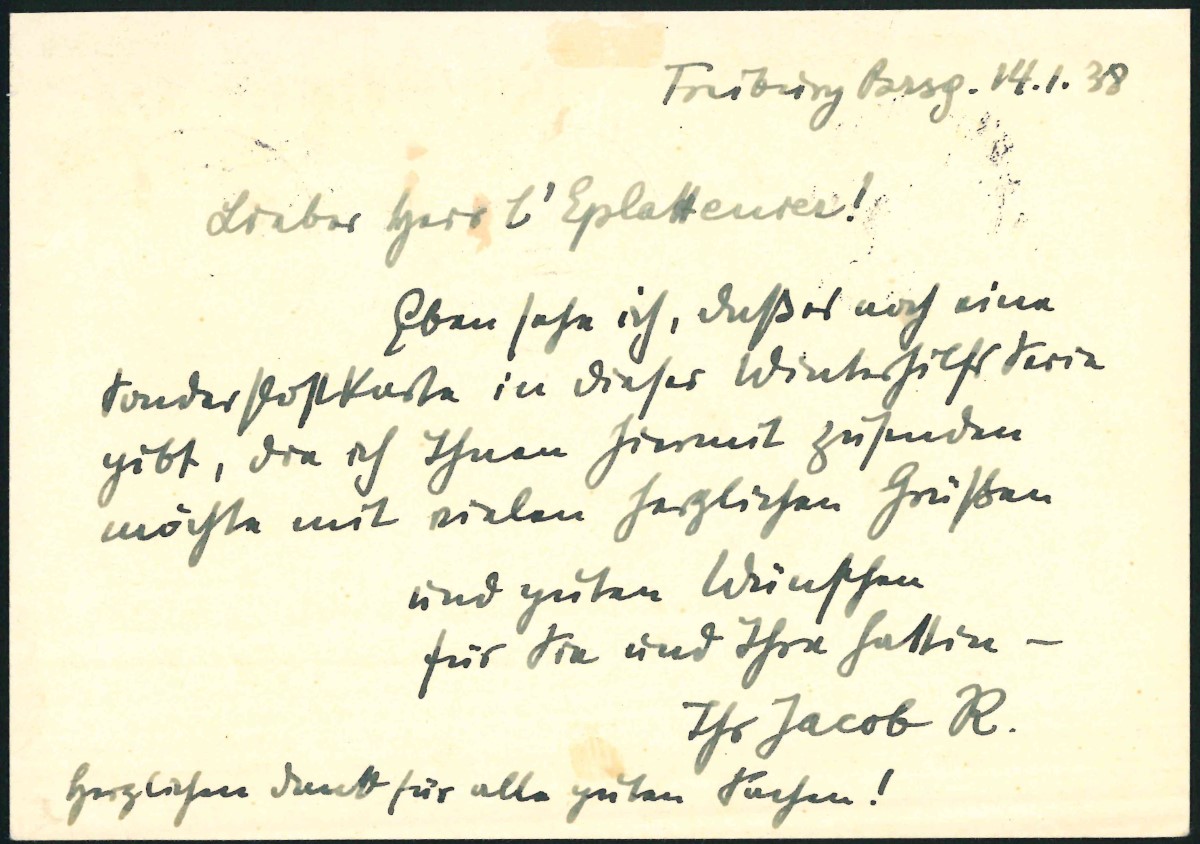 Freiburg Brsg. 14.1.38
Lieber Herr L'Eplattenier!
Eben sehe ich, daß es noch eine
Sonderpostkarte in dieser Winterhilfs Serie
gibt, die ich Ihnen hiermit zusenden
möchte mit vielen herzlichen Grüßen
und guten Wünschen
für Sie und Ihre Gattin –
Ihr Jacob R.
Herzlichen Dank für alle guten Sachen!